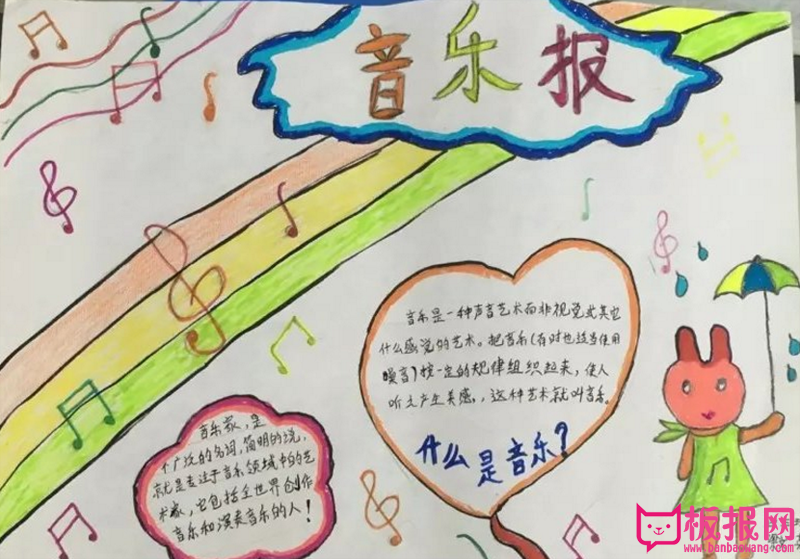 音乐报
音乐是一种声音艺术而非视觉或其它
什么感觉的艺术。把音乐(有时也适当使用
噪音)按一定的规律组织起来,使人
听之产生美感,,这种艺术就叫音乐。
什么是音乐?
音乐家,是
个广泛的名词,简明的说,
就是专注于音乐领域中的艺
术家,它包括全世界创作
音乐和演奏音乐的人!
板报网
www.banbaowang.com